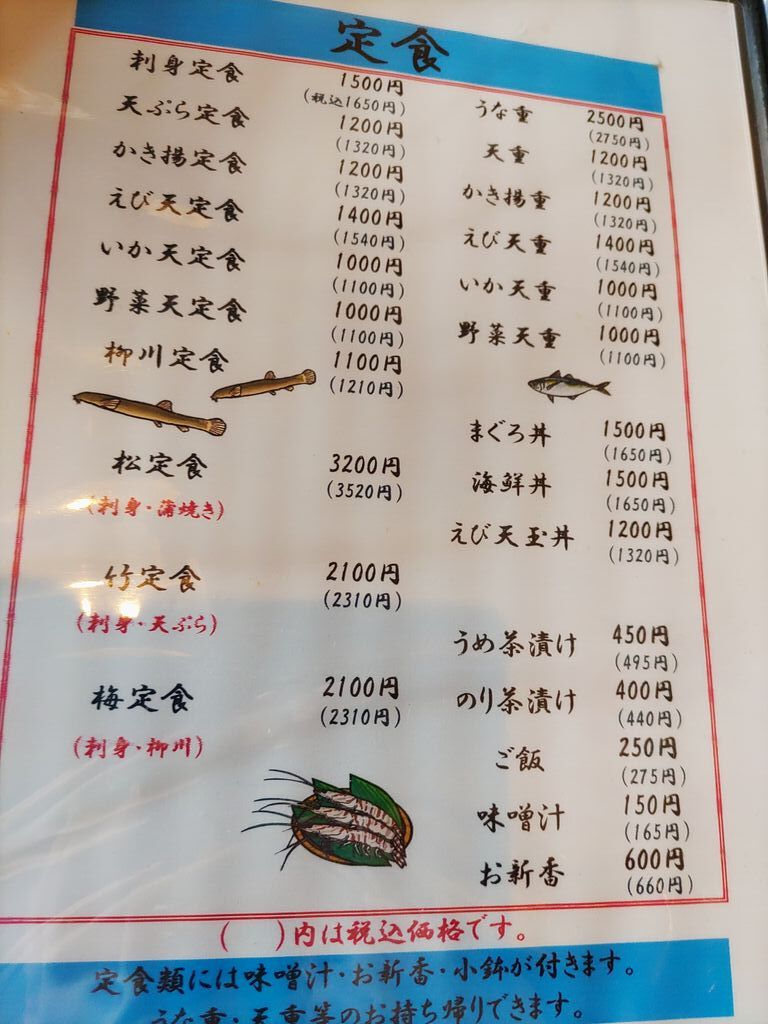 定食
刺身定食 1500円
(税込1650円)
天ぷら定食 1200円
(1320円)
かき揚定食 1200円
(1320円)
えび天定食 1400円
(1540円)
いか天定食 1000円
(1100円)
野菜天定食 1000円
(1100円)
柳川定食 1100円
(1210円)
松定食 3200円
(3520円)
(刺身・蒲焼き)
竹定食 2100円
(2310円)
(刺身・天ぷら)
梅定食 2100円
(2310円)
(刺身・柳川)
うな重 2500円
(2750円)
天重 1200円
(1320円)
かき揚重 1200円
(1320円)
えび天重 1400円
(1540円)
いか天重 1000円
(1100円)
野菜天重 1000円
(1100円)
まぐろ丼 1500円
(1650円)
海鮮丼 1500円
(1650円)
えび天玉丼 1200円
(1320円)
うめ茶漬け 450円
(495円)
のり茶漬け 400円
(440円)
ご飯 250円
(275円)
味噌汁 150円
(165円)
お新香 600円
(660円)
( )内は税込価格です。
定食類には味噌汁・お新香・小鉢が付きます。
うな重・天重等のお持ち帰りできます。